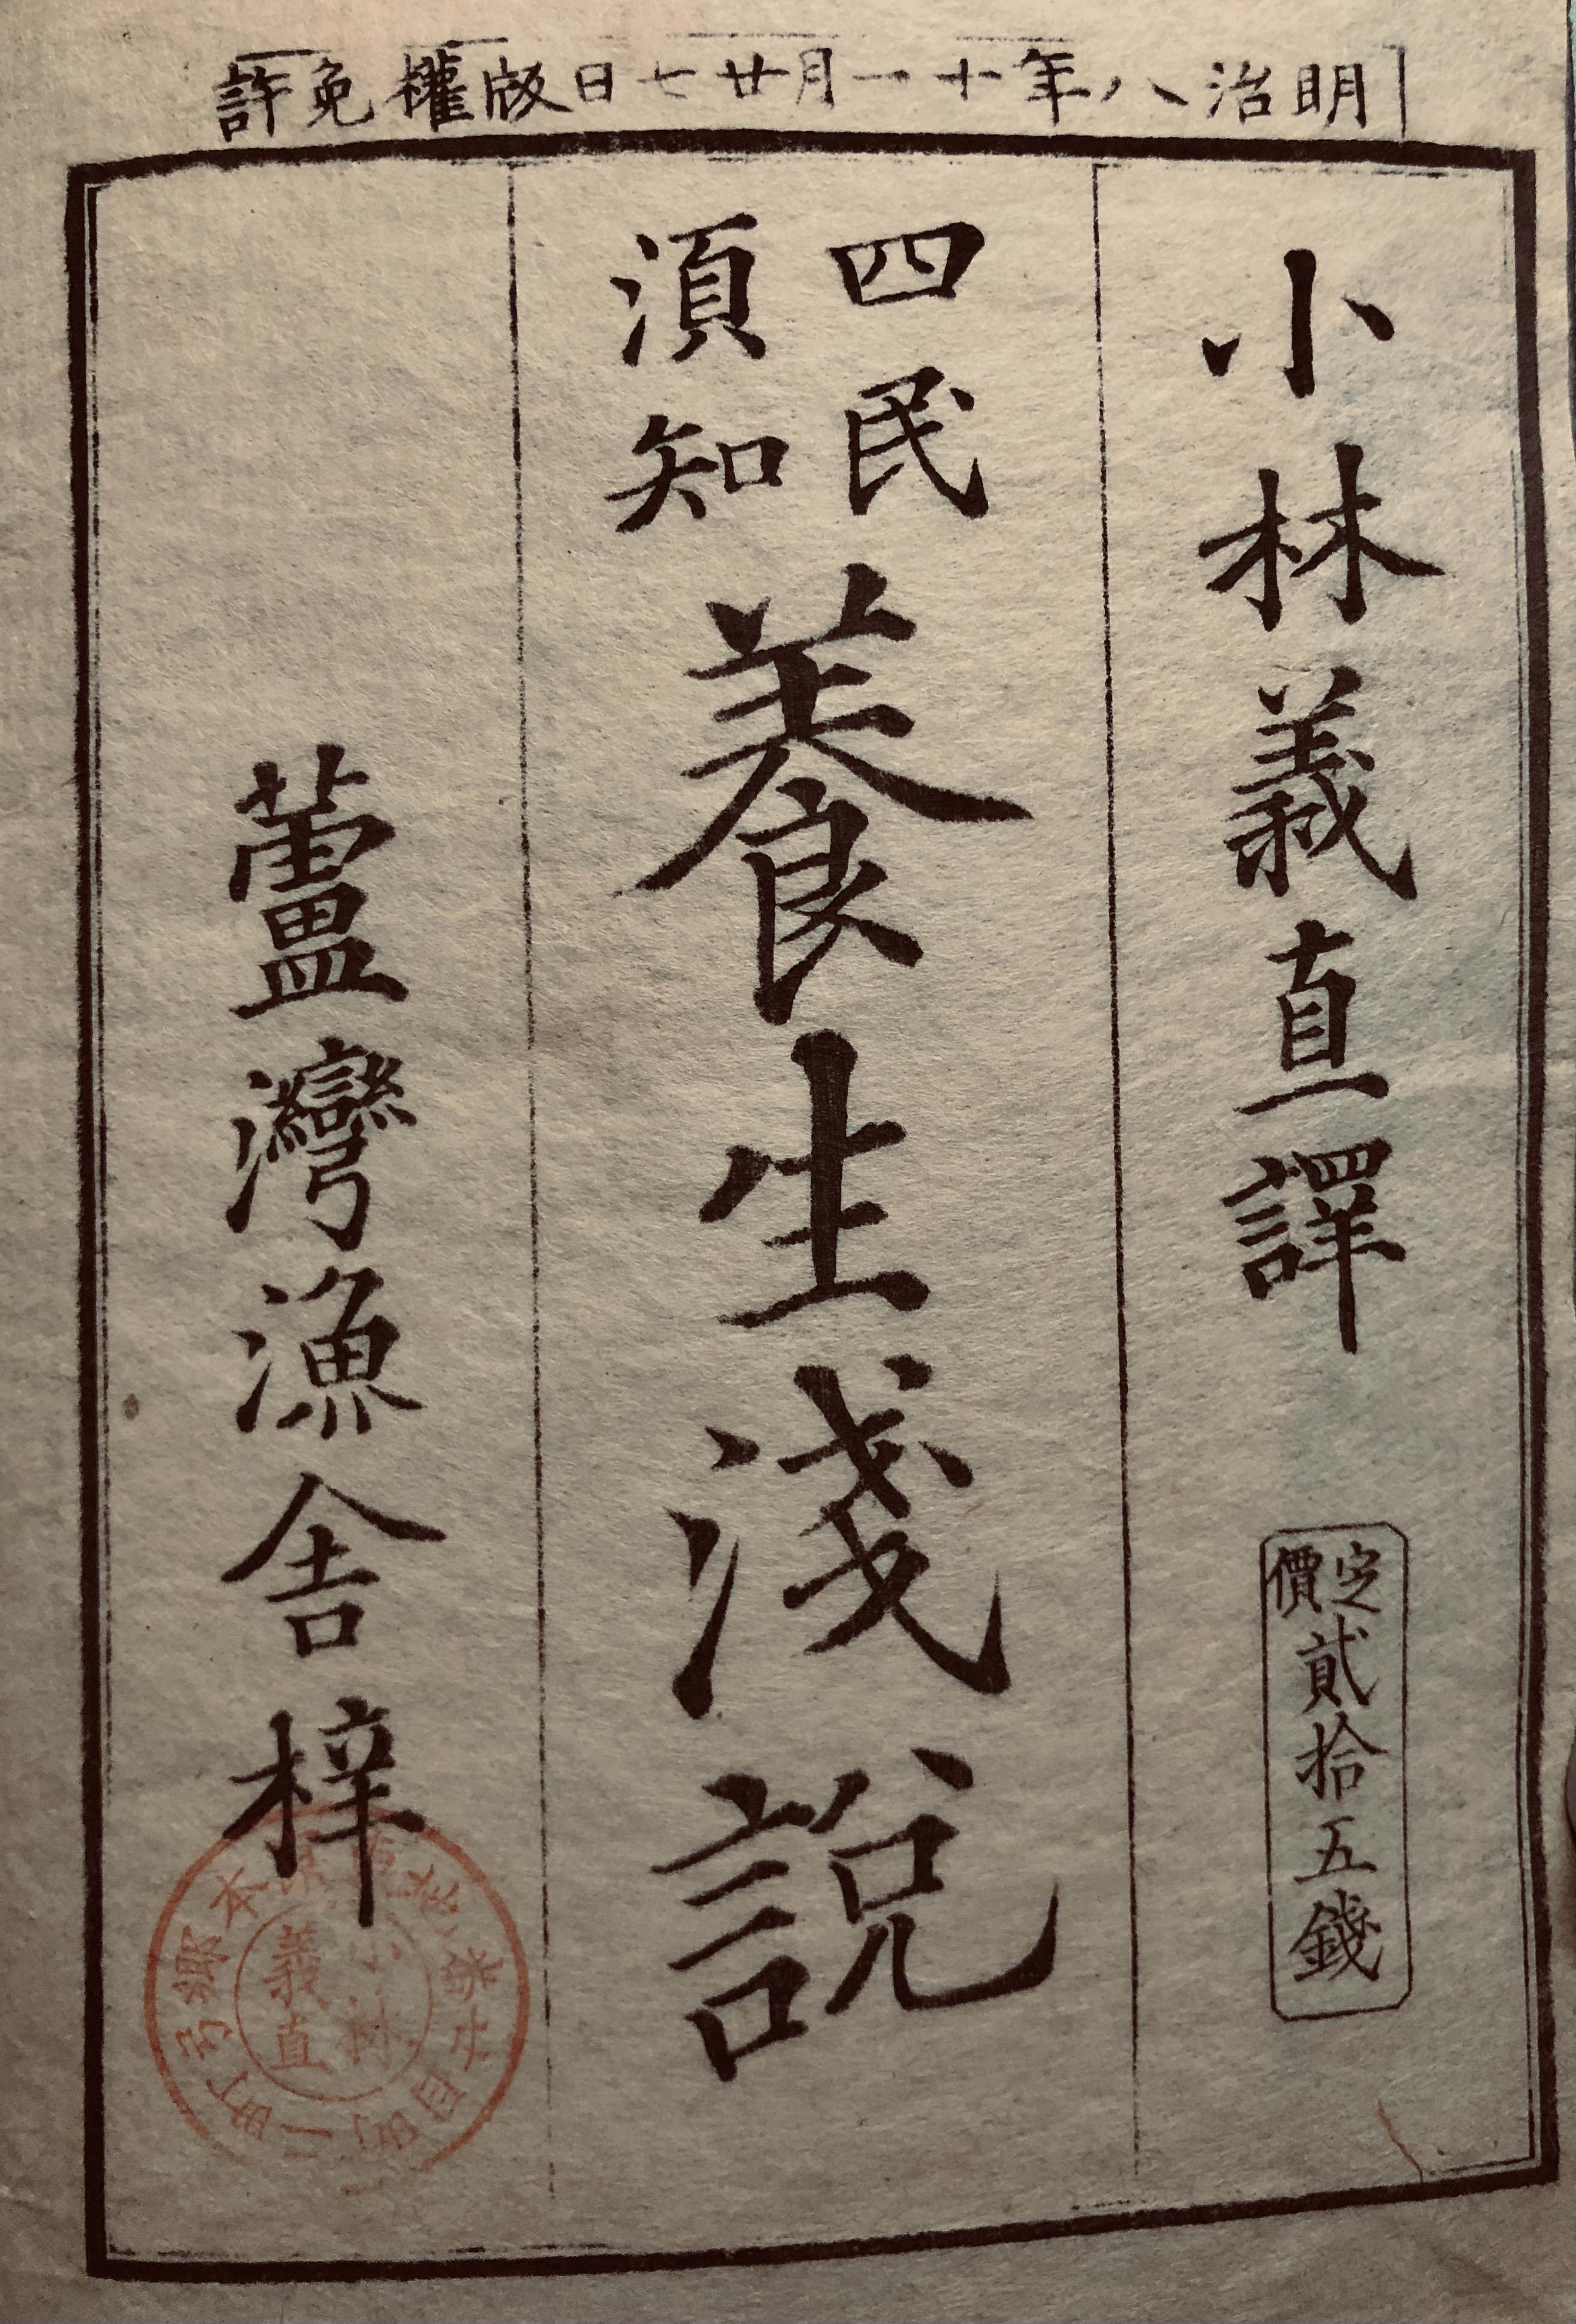 明治八年十一月廿七日版權免許
小林義直譯
定價
貳拾五錢
四民
須知
養生淺說
蘆灣漁舍梓
小林
義直